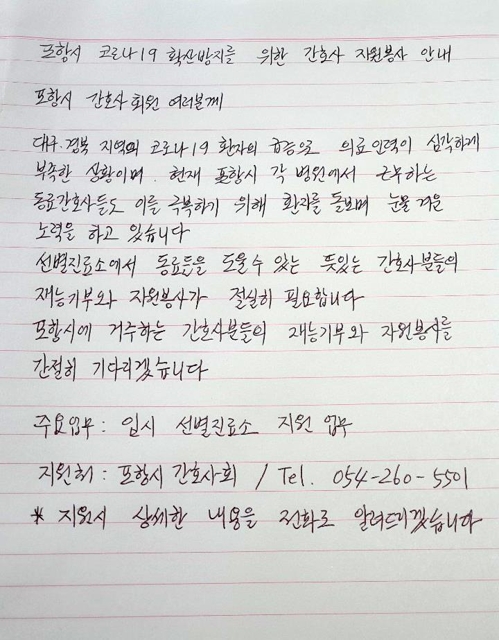 포항시 코로나19 확산방지를 위한 간호사 자원봉사 안내
포항시 간호사 회원 여러분께
대구·경북 지역의 코로나19 환자의 급증으로 의료인력이 심각하게
부족한 상황이며, 현재 포항시 각 병원에서 근무하는
동료간호사들도 이를 극복하기 위해 환자를 돌보며 눈물겨운
노력을 하고 있습니다
선별진료소에서 동료들을 도울 수 있는 뜻있는 간호사분들의
재능기부와 자원봉사가 절실히 필요합니다
포항시에 거주하는 간호사분들의 재능기부와 자원봉사를
간절히 기다리겠습니다
주요업무 : 임시 선별진료소 지원 업무
지원처 : 포항시 간호사회 / Tel. 054-260-5501
* 지원시 상세한 내용을 전화로 알려드리겠습니다